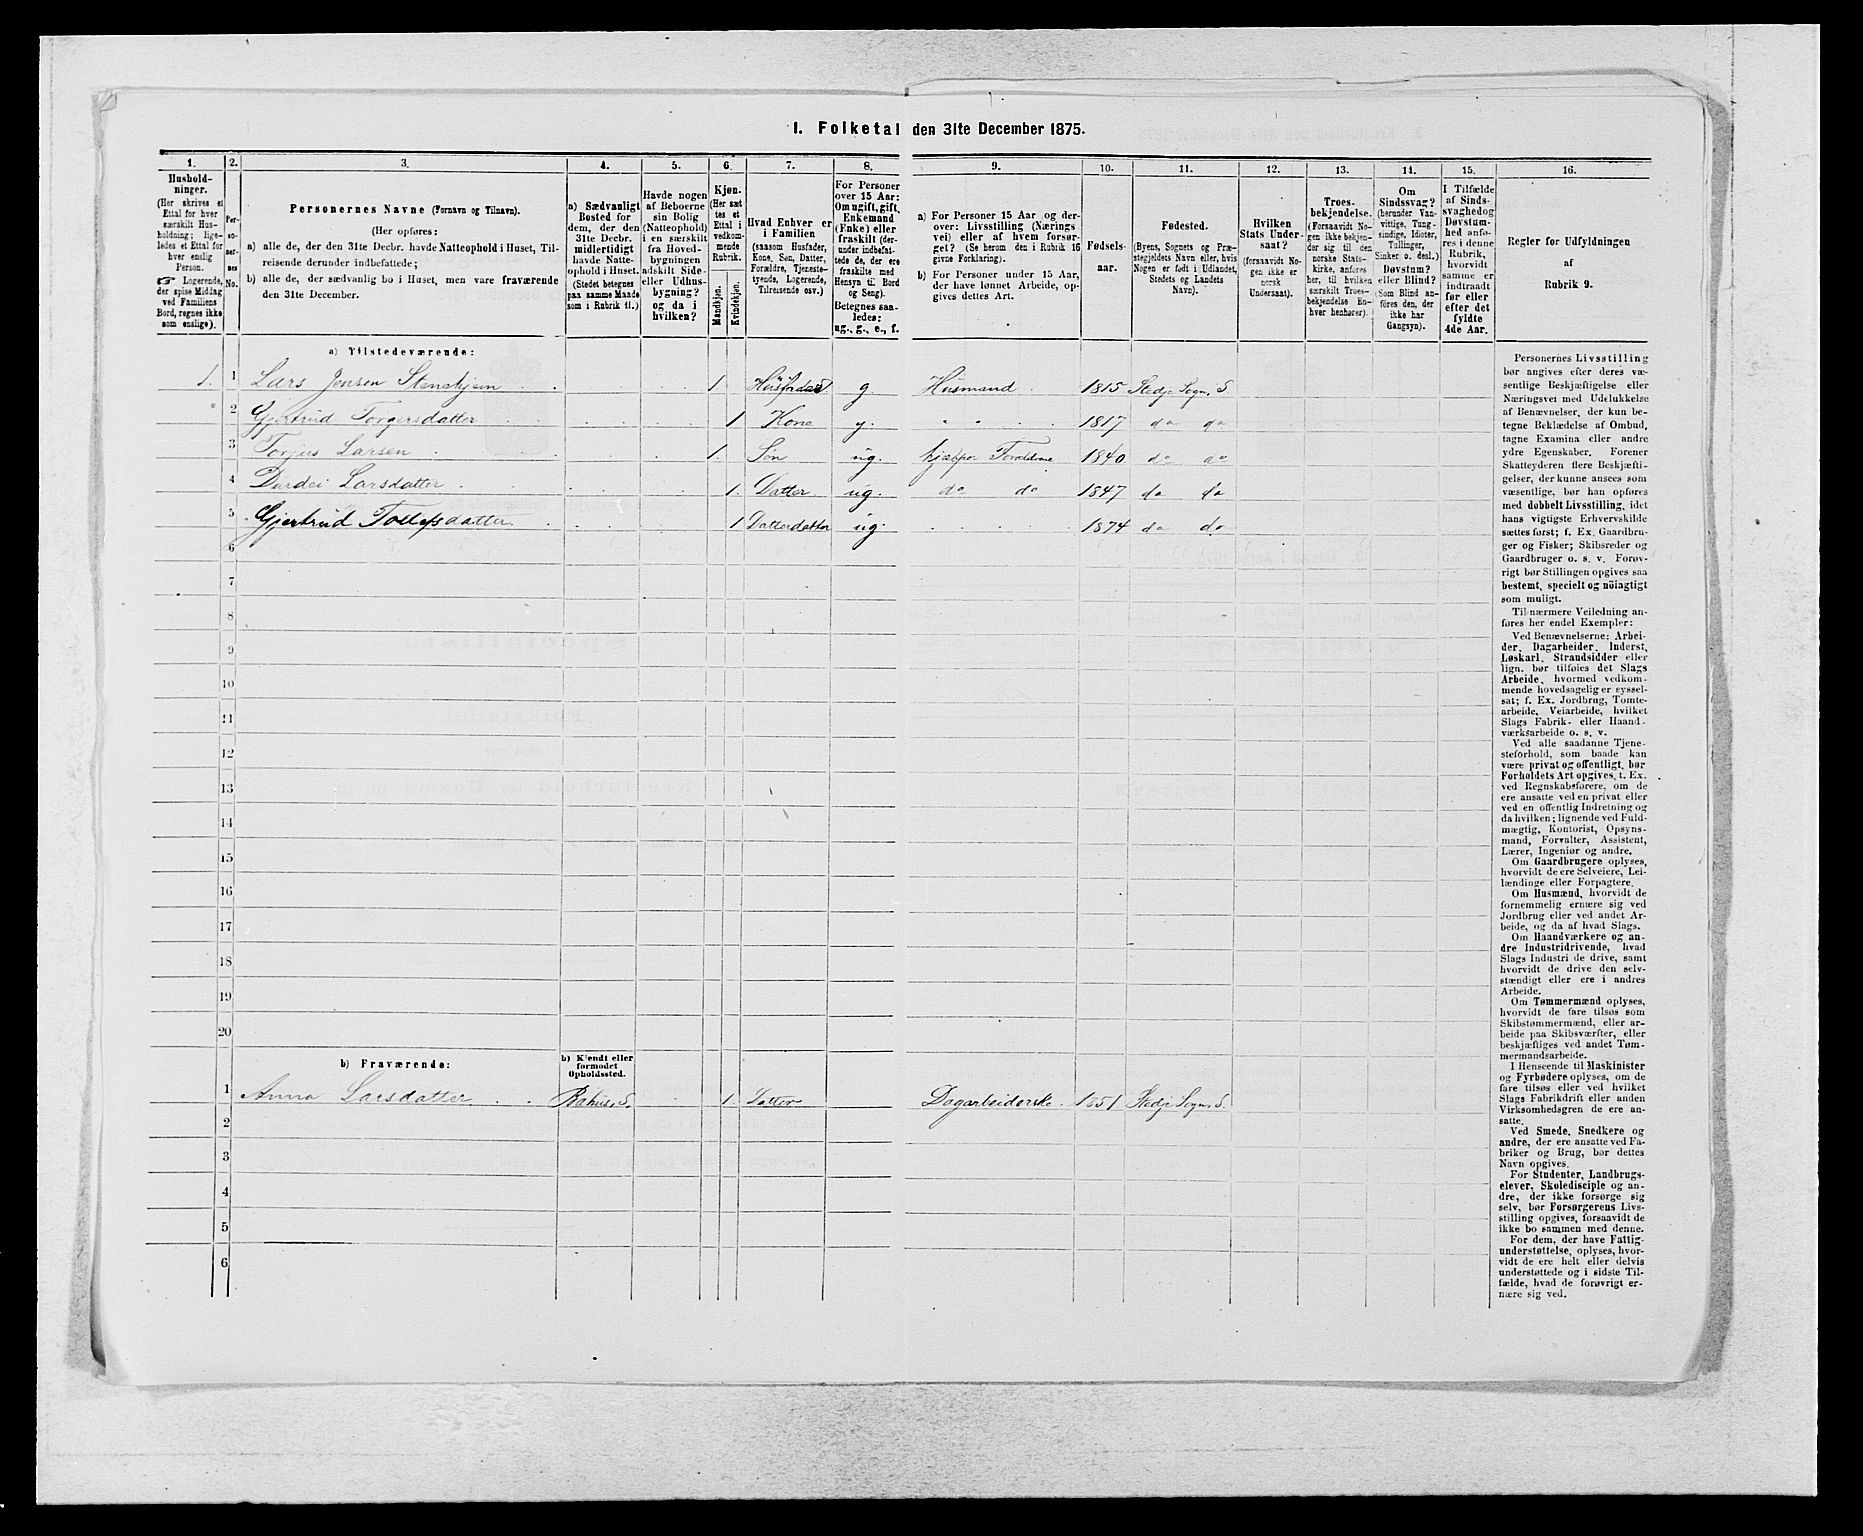 1. Folketal den 31te December 1875.
1. 2. 3. 4. 5. 6. 7. 8. 9. 10. 11. 12. 13. 14. 15. 16.
Hushold-
ninger.
(Her skrives et
Ettal for hver
særskilt Hus-
holdning; lige-
ledes et Ettal for
hver enslig
Person.
☞ Logerende,
der spise Middag
ved Familiens
Bord, regnes ikke
som enslige).
Per-
so-
ner-
nes
No.
Personernes Navne (Fornavn og Tilnavn).
(Her opføres:
a) alle de, der den 31te Decbr. havde Natteophold i Huset, Til-
reisende derunder indbefattede;
b) alle de, der sædvanlig bo i Huset, men vare fraværende
den 31te December.
a) Sædvanligt
Bosted for
dem, der den
31te Decbr.
midlertidigt
havde Natte-
ophold i Huset.
(Stedet betegnes
paa samme Maade
som i Rubrik 11.)
Havde nogen
af Beboerne
sin Bolig
(Natteophold)
i en særskilt
fra Hoved-
bygningen
adskilt Side-
eller Udhus-
bygning?
og da i
hvilken?
Kjøn.
(Her sæt
tes et
Ettal i
vedkom-
mende
Rubrik.
Mandkjøn.
Kvindekjøn.
Hvad Enhver er
i Familien
(saasom Husfader,
Kone, Søn, Datter,
Forældre, Tjeneste-
tyende, Logerende,
Tilreisende osv.)
For Personer
over 15 Aar:
Om ugift, gift,
Enkemand
(Enke) eller
fraskilt (der-
under indbefat-
tede de, der ere
fraskilte med
Hensyn til Bord
og Seng).
Betegnes saa-
ledes:
ug., g., e., f.
a) For Personer 15 Aar og der-
over: Livsstilling (Nærings
vei) eller af hvem forsør-
get? (Se herom den i Rubrik 16
givne Forklaring).
b) For Personer under 15 Aar,
der have lønnet Arbeide, op-
gives dettes Art.
Fødsels-
aar.
Fødested.
(Byens, Sognets og Præ-
stegjeldets Navn eller, hvis
Nogen er født i Udlandet,
Stedets og Landets
Navn).
Hvilken
Stats Under-
saat?
(forsaavidt No-
gen ikke er
norsk
Undersaat).
Troes-
bekjendelse.
(Forsaavidt No-
gen ikke bekjen-
der sig til den
norske Stats-
kirke, anføres
her, til hvilken
særskilt Troes-
bekjendelse En-
hver henhører).
Om
Sindssvag?
(herunder Van-
vittige, Tung-
sindige, Idioter,
Tullinger,
Sinker o. desl.)
Døvstum?
eller Blind?
(Som Blind an-
føres den, der
ikke har
Gangsyn).
I Tilfælde
af Sinds-
svaghed og
Døvstum-
hed anfø-
res i denne
Rubrik,
hvorvidt
samme er
indtraadt
før eller
efter det
fyldte
4de Aar.
Regler for Udfyldningen
af
Rubrik 9.
a) Tilstedeværende:
1. 1 Lars Jensen Stenehjem 1. Husfader g. Husmand 1815 Stedje Sogn, S
2 Gjertrud Torgersdatter 1 Kone g. " " 1817 do do
3 Torjus Larsen 1. Søn ug. hjælper Forældrene 1840 do do
4 Dordei Larsdatter 1. Datter ug. do do 1847 do do
5 Gjertrud Tollefsdatter 1 Datterdatter ug. 1874 do do
6
7
8
9
10
11
12
13
14
15
16
17
18
19
20
b) Fraværende:
b) Kjendt eller
formodet
Opholdssted.
1 Anna Larsdatter 1. Datter Dagarbeiderske 1851 Stedje Sogn, S.
2
3
4
5
6
Personernes Livsstilling
bør angives efter deres væ-
sentlige Beskjæftigelse eller
Næringsvei med Udelukkelse
af Benævnelser, der kun be-
tegne Beklædelse af Ombud,
tagne Examina eller andre
ydre Egenskaber. Forener
Skatteyderen flere Beskjæfti-
gelser, der kunne ansees som
væsentlige, bør han opføres
med dobbelt Livsstilling, idet
hans vigtigste Erhvervskilde
sættes først; f. Ex. Gaardbru-
ger og Fisker; Skibsreder og
Gaardbruger o. s. v. Forøv-
rigt bør Stillingen opgives saa
bestemt, specielt og nöiagtigt
som muligt.
Til nærmere Veiledning an-
føres her endel Exempler:
Ved Benævnelserne: Arbei-
der, Dagarbeider, Inderst,
Løskarl, Strandsidder eller
lign. bør tilføies det Slags
Arbeide, hvormed vedkom-
mende hovedsagelig er syssel-
sat; f. Ex. Jordbrug, Tomte-
arbeide, Veiarbeide, hvilket
Slags Fabrik- eller Haand-
værksarbeide o. s. v.
Ved alle saadanne Tjene-
steforhold, som baade kan
være privat og offentligt, bør
Forholdets Art opgives, t. Ex.
ved Regnskabsførere, om de
ere ansatte ved en privat eller
ved en offentlig Indretning og
da hvilken; lignende ved Fuld-
mægtig, Kontorist, Opsyns-
mand, Forvalter, Assistent,
Lærer, Ingeniør og andre.
Om Gaardbrugere oplyses,
hvorvidt de ere Selveiere, Lei-
lændinge eller Forpagtere.
Om Husmænd, hvorvidt de
fornemmelig ernære sig ved
Jordbrug eller ved andet Ar-
beide, og da af hvad Slags.
Om Haandværkere og an-
dre Industridrivende, hvad
Slags Industri de drive, samt
hvorvidt de drive den selv-
stændigt eller ere i andres
Arbeide.
Om Tømmermænd oplyses,
hvorvidt de fare tilsøs som
Skibstømmermænd, eller ar-
beide paa Skibsværfter, eller
beskjæftiges ved andet Tøm-
mermandsarbeide.
I Henseende til Maskinister
og Fyrbødere oplyses, om de
fare tilsøs eller ved hvilket
Slags Fabrikdrift eller anden
Virksomhedsgren de ere an-
satte.
Ved Smede, Snedkere og
andre, der ere ansatte ved Fa-
briker og Brug, bør dettes
Navn opgives.
For Studenter, Landbrugs-
elever, Skoledisciple og an-
dre, der ikke forsørge sig
selv, bør Forsørgerens Livs-
stilling opgives, forsaavidt de
ikke bo sammen med denne.
For dem, der have Fattig-
understøttelse, oplyses, hvor-
vidt de ere helt eller delvis
understøttede og i sidste Til-
fælde, hvad de forøvrigt er-
nære sig ved.